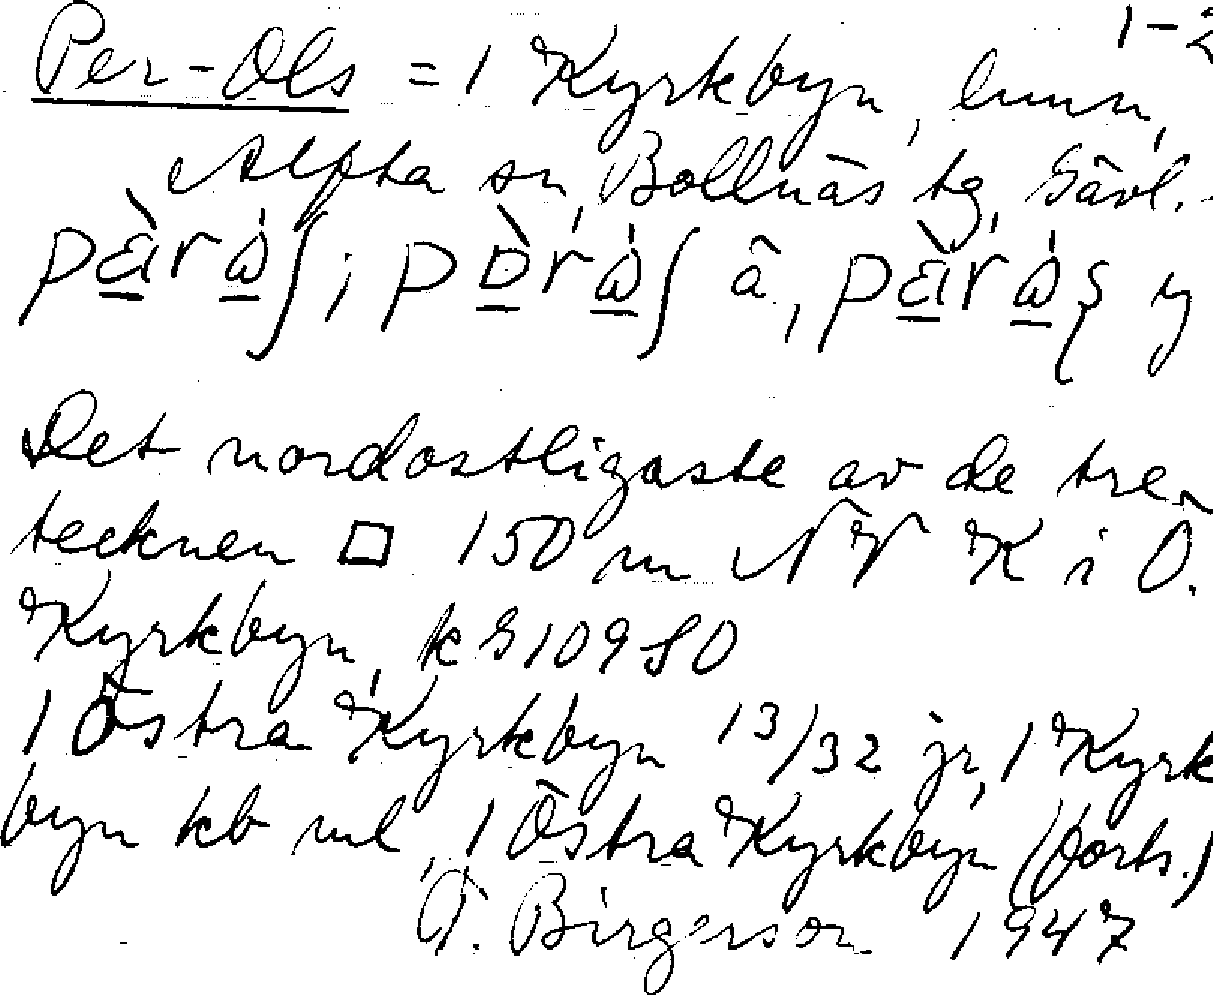 1-2
Per-Ols = 1 Kyrkbyn, hmn,
Alfta sn, Bollnäs tg, Gävl.
pàrω̇ʃ; pòrω̇ʃ ä, pàrω̇ʂ y
Det nordostligaste av de tre
tecknen □ 150 m NV K i Ö.
Kyrkbyn, k G 109 SO
1 Östra Kyrkbyn 13/32 jr, 1 Kyrk
byn kb ml, 1 Östra Kyrkbyn (forts.)
T. Birgerson 1947